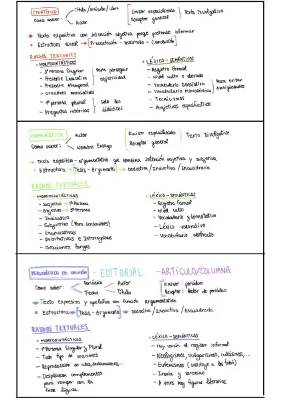 CIENTÍFICO
Título/artículo/libro
Como saber:
Autor
Emisor especializado
Receptor general
Texto divulgativo
Texto expositivo con intención objetiva porque pretende informar
Estructura lineal → Presentación - desarrollo - (conclusión)
RASGOS TEXTUALES
- MORFOSINTÁCTICOS
- 3ª Persona Singular
- Presente Indicativo
- Presente atemporal
- Oraciones enunciativas
para conseguir objetividad
- 1ª persona plural
- Preguntas retóricas
solo las didácticas
- LÉXICO-SEMÁNTICOS
- Registro formal
- Nivel culto o elevado
- Vocabulario denotativo
- Vocabulario monosémico
- Tecnicismos
- Adjetivos especificativos
para evitar ambigüedades
HUMANÍSTICO
Como saber:
Autor
Nombre Ensayo
Emisor especializado
Receptor general
Texto divulgativo
Texto expositivo-argumentativo que combina intención objetiva y subjetiva
Estructura → Tesis - Argumento → deductiva / inductiva / encuadrada
RASGOS TEXTUALES
- MORFOSINTÁCTICOS
- Subjetivo → 1ª Persona
- Objetivo → 3ª Persona
- Indicativo
- Subjuntivo
- Enunciativas
- Exhortativas e Interrogativas
- Oraciones largas
- LÉXICO-SEMÁNTICOS
- Registro formal
- Nivel culto
- Vocabulario denotativo
- Léxico valorativo
- Vocabulario abstracto
PERIODÍSTICO DE OPINIÓN
- EDITORIAL
- ARTÍCULO/COLUMNA
Como saber:
Periódico
Fecha
Autor
Título
Emisor: periodista
Receptor: lector de periódico
Texto expresivo y apelativo con función argumentativa
Estructura → Tesis - Argumento → deductiva / inductiva / encuadrada
RASGOS TEXTUALES
- MORFOSINTÁCTICOS
- 1ª Persona Singular y Plural
- Todo tipo de oraciones
- Desplazan complementos para romper con la frase lógica
- LÉXICO-SEMÁNTICOS
- Hay rasgos de registro informal
- Ironía y sarcasmo
- A veces hay figuras literarias